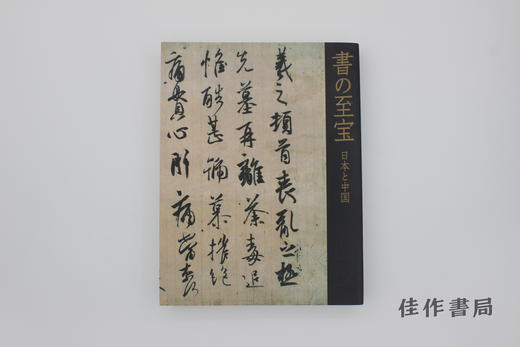 書の至宝
日本と中国
羲之頓首喪乱之極
先墓再離荼毒追
惟酷甚号慕摧絶
痛貫心肝痛当奈
佳作書局